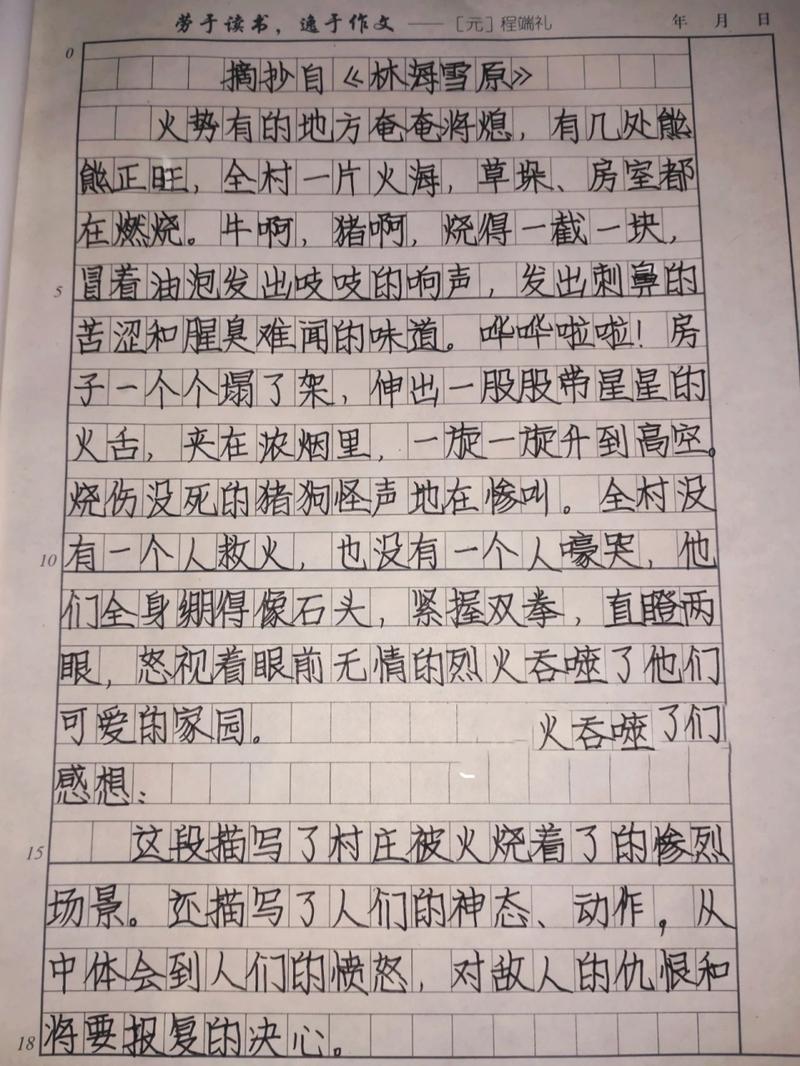 劳于读书，逸于作文 ——［元］程端礼 年 月 日
0
摘抄自《林海雪原》
火势有的地方奄奄将熄，有几处熊
熊正旺，全村一片火海，草垛、房室都
在燃烧。牛啊，猪啊，烧得一截一块，
5 冒着油泡发出吱吱的响声，发出刺鼻的
苦涩和腥臭难闻的味道。哗哗啦啦！房
子一个个塌了架，伸出一股股带星星的
火舌，夹在浓烟里，一旋一旋升到高空。
烧伤没死的猪狗怪声地在惨叫。全村没
10 有一个人救火，也没有一个人嚎哭，他
们全身绷得像石头，紧握双拳，直瞪两
眼，怒视着眼前无情的烈火吞噬了他们
可爱的家园。 火吞噬了们
感想：
15 这段描写了村庄被火烧着了的惨烈
场景。还描写了人们的神态、动作，从
中体会到人们的愤怒，对敌人的仇恨和
18 将要报复的决心。